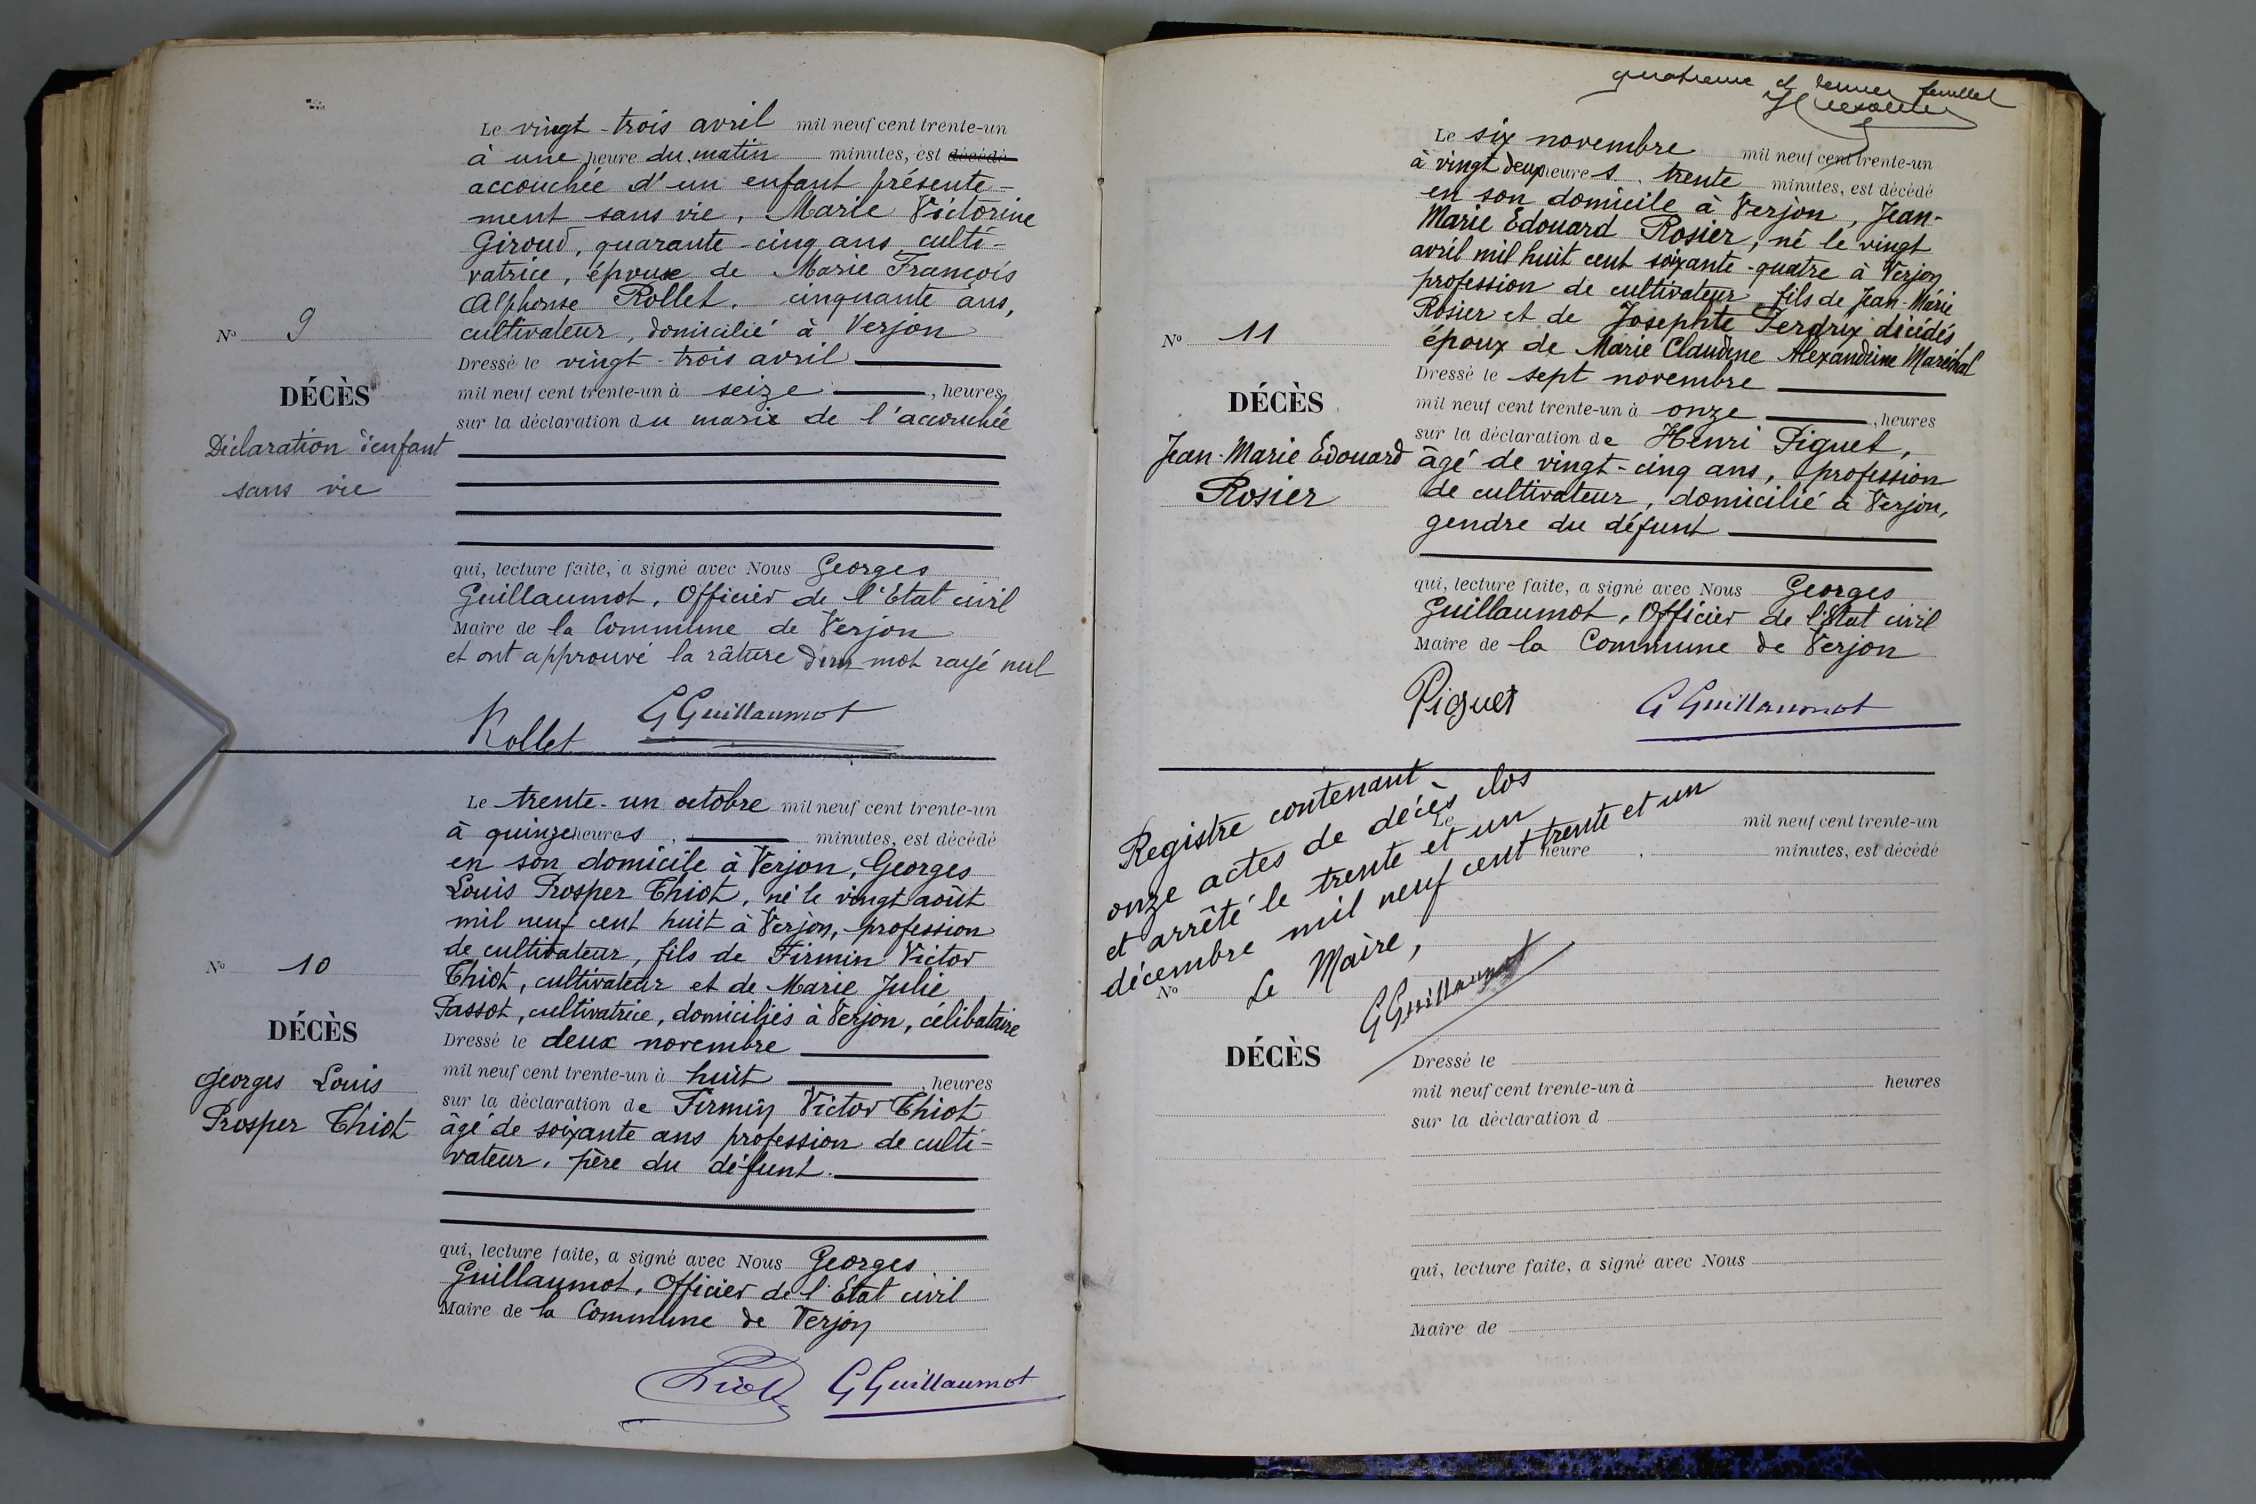 Le vingt-trois avril mil neuf cent trente-un
à une heure du matin minutes, est décédé
accouchée d'un enfant présente-
ment sans vie, Marie Victorine
Giroud, quarante-cinq ans culti-
vatrice, épouse de Marie François
Alphonse Rollet, cinquante ans,
cultivateur, domicilié à Verjon
Dressé le vingt-trois avril
mil neuf cent trente-un à seize, heures
sur la déclaration du marie de l'accouchée
N° 9
DÉCÈS
Déclaration d'enfant
sans vie
qui, lecture faite, a signé avec Nous Georges
Guillaumot, Officier de l'Etat civil
Maire de la Commune de Verjon
et ont approuvé la râture d'un mot rayé nul
Rollet GGuillaumot
Le trente-un octobre mil neuf cent trente-un
à quinze heures, minutes, est décédé
en son domicile à Verjon, Georges
Louis Prosper Thiot, né le vingt août
mil neuf cent huit à Verjon, profession
de cultivateur, fils de Firmin Victor
Thiot, cultivateur et de Marie Julie
Passot, cultivatrice, domiciliés à Verjon, célibataire
Dressé le deux novembre
mil neuf cent trente-un à huit, heures
sur la déclaration de Firmin Victor Thiot
âgé de soixante ans profession de culti-
vateur, père du défunt.
N° 10
DÉCÈS
Georges Louis
Prosper Thiot
qui, lecture faite, a signé avec Nous Georges
Guillaumot, Officier de l'Etat civil
Maire de la Commune de Verjon
GGuillaumot
quatrième et dernier feuillet
Le six novembre mil neuf cent trente-un
à vingt deux heures, trente minutes, est décédé
en son domicile à Verjon, Jean-
Marie Edouard Rosier, né le vingt
avril mil huit cent soixante-quatre à Verjon
profession de cultivateur, fils de Jean-Marie
Rosier et de Josephte Perdrix décédés
époux de Marie Claudine Alexandrine Maréchal
Dressé le sept novembre
mil neuf cent trente-un à onze, heures
sur la déclaration de Henri Piguet,
âgé de vingt-cinq ans, profession
de cultivateur, domicilié à Verjon,
gendre du défunt
N° 11
DÉCÈS
Jean-Marie Edouard
Rosier
qui, lecture faite, a signé avec Nous Georges
Guillaumot, Officier de l'Etat civil
Maire de la Commune de Verjon
Piguet G Guillaumot
Registre contenant
onze actes de décès clos
et arrêté le trente et un
décembre mil neuf cent trente et un
Le Maire,
GGuillaumot
Le mil neuf cent trente-un
heure, minutes, est décédé
N°
DÉCÈS
Dressé le
mil neuf cent trente-un à heures
sur la déclaration d
qui, lecture faite, a signé avec Nous
Maire de